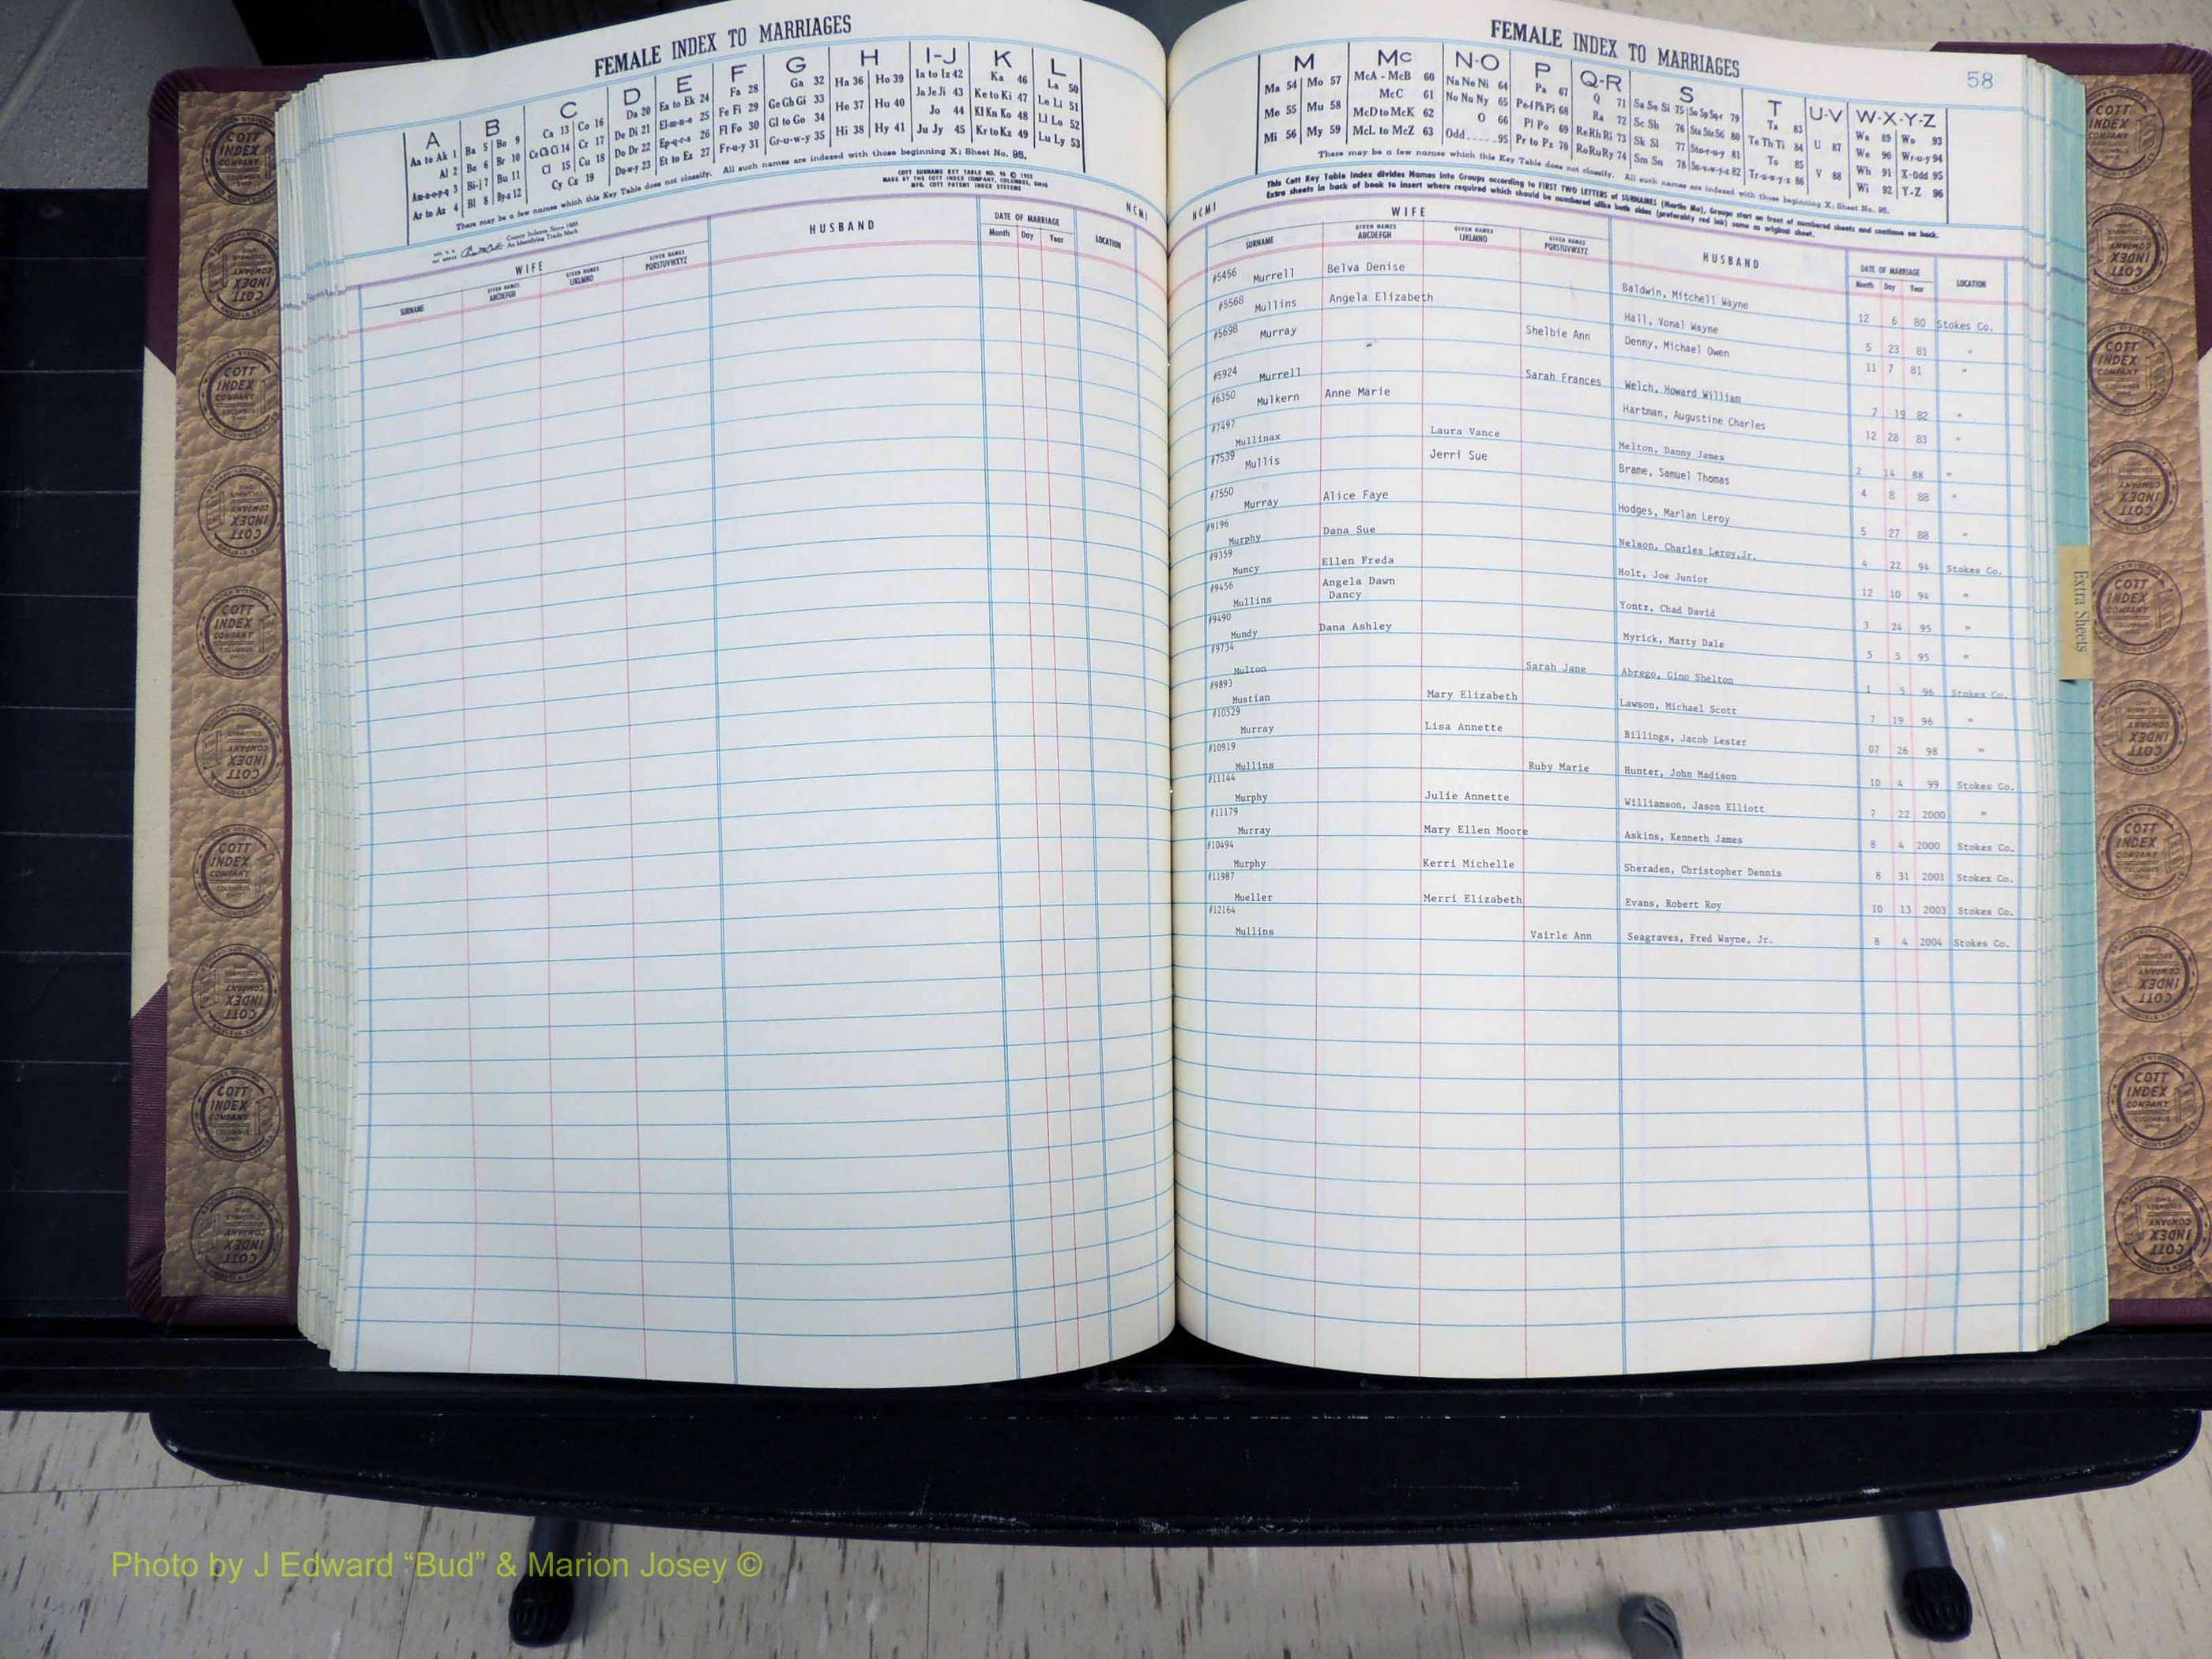 FEMALE INDEX TO MARRIAGES
A B C D E F G H I-J K L
Aa to Ak 1 Ba 5 Bo 9 Ca 13 Co 16 Da 20 Ea to Ek 24 Fa 28 Ga 32 Ha 36 Ho 39 Ia to Iz 42 Ka 46 La 50
Al 2 Be 6 Br 10 Ce Ch Ci 14 Cr 17 De Di 21 El-m-n-o 25 Fe Fi 29 Ge Gh Gi 33 He 37 Hu 40 Ja Je Ji 43 Ke to Ki 47 Le Li 51
Am-n-o-p-q 3 Bi-j 7 Bu 11 Cl 15 Cu 18 Do Dr 22 Ep-q-r-s 26 Fl Fo 30 Gl to Go 34 Hi 38 Hy 41 Jo 44 Kl Kn Ko 48 Ll Lo 52
Ar to Az 4 Bl 8 By-z 12 Cy Cz 19 Du-w-y 23 Et to Ez 27 Fr-u-y 31 Gr-u-w-y 35 Ju Jy 45 Kr to Kz 49 Lu Ly 53
There may be a few names which this Key Table does not classify. All such names are indexed with those beginning X; Sheet No. 95.
COTT SURNAME KEY TABLE NO. 96 © 1952
MADE BY THE COTT INDEX COMPANY, COLUMBUS, OHIO
MFG. COTT PATENT INDEX SYSTEMS
County Indexes Since 1888
An Identifying Trade Mark
NCMI
WIFE HUSBAND DATE OF MARRIAGE LOCATION
SURNAME GIVEN NAMES ABCDEFGH GIVEN NAMES IJKLMNO GIVEN NAMES PQRSTUVWXYZ Month Day Year
FEMALE INDEX TO MARRIAGES
58
M Mc N-O P Q-R S T U-V W-X-Y-Z
Ma 54 Mo 57 McA - McB 60 Na Ne Ni 64 Pa 67 Q 71 Sa Se Si 75 So Sp Sq-r 79 Ta 83 U 87 Wa 89 Wo 93
Me 55 Mu 58 McC 61 No Nu Ny 65 Pe-f Ph Pi 68 Ra 72 Sc Sh 76 Sta Ste 56 80 Te Th Ti 84 V 88 We 90 Wr-u-y 94
Mi 56 My 59 McD to McK 62 O 66 Pl Po 69 Re Rh Ri 73 Sk Sl 77 Sto-r-u-y 81 To 85 Wh 91 X-Odd 95
McL to McZ 63 Odd 95 Pr to Pz 70 Ro Ru Ry 74 Sm Sn 78 Su-v-w-y-z 82 Tr-u-w-y-z 86 Wi 92 Y-Z 96
There may be a few names which this Key Table does not classify. All such names are indexed with those beginning X; Sheet No. 95.
This Cott Key Table Index divides Names into Groups according to FIRST TWO LETTERS of SURNAMES (Martin Ma). Groups start on front of numbered sheets and continue on back.
Extra sheets in back of book to insert where required which should be numbered alike both sides (preferably red ink) same as original sheet.
NCMI
WIFE HUSBAND DATE OF MARRIAGE LOCATION
SURNAME GIVEN NAMES ABCDEFGH GIVEN NAMES IJKLMNO GIVEN NAMES PQRSTUVWXYZ Month Day Year
#5456 Murrell Belva Denise Baldwin, Mitchell Wayne 12 6 80 Stokes Co.
#5568 Mullins Angela Elizabeth Hall, Vonal Wayne 5 23 81 "
#5698 Murray Shelbie Ann Denny, Michael Owen 11 7 81 "
#5924 Murrell Sarah Frances Welch, Howard William 7 19 82 "
#6350 Mulkern Anne Marie Hartman, Augustine Charles 12 28 83 "
#7497 Mullinax Laura Vance Melton, Danny James 2 14 88 "
#7539 Mullis Jerri Sue Brame, Samuel Thomas 4 8 88 "
#7550 Murray Alice Faye Hodges, Marlan Leroy 5 27 88 "
#9196 Murphy Dana Sue Nelson, Charles Leroy,Jr. 4 22 94 Stokes Co.
#9359 Muncy Ellen Freda Holt, Joe Junior 12 10 94 "
#9456 Mullins Angela Dawn Dancy Yontz, Chad David 3 24 95 "
#9490 Mundy Dana Ashley Myrick, Marty Dale 5 5 95 "
#9734 Multon Sarah Jane Abrego, Gino Shelton 1 5 96 Stokes Co.
#9893 Mustian Mary Elizabeth Lawson, Michael Scott 7 19 96 "
#10529 Murray Lisa Annette Billings, Jacob Lester 07 26 98 "
#10919 Mullins Ruby Marie Hunter, John Madison 10 4 99 Stokes Co.
#11144 Murphy Julie Annette Williamson, Jason Elliott 7 22 2000 "
#11179 Murray Mary Ellen Moore Askins, Kenneth James 8 4 2000 Stokes Co.
#10494 Murphy Kerri Michelle Sheraden, Christopher Dennis 8 31 2001 Stokes Co.
#11987 Mueller Merri Elizabeth Evans, Robert Roy 10 13 2003 Stokes Co.
#12164 Mullins Vairle Ann Seagraves, Fred Wayne, Jr. 8 4 2004 Stokes Co.
Extra Sheets
COTT INDEX COMPANY COLUMBUS OHIO
Photo by J Edward “Bud” & Marion Josey ©